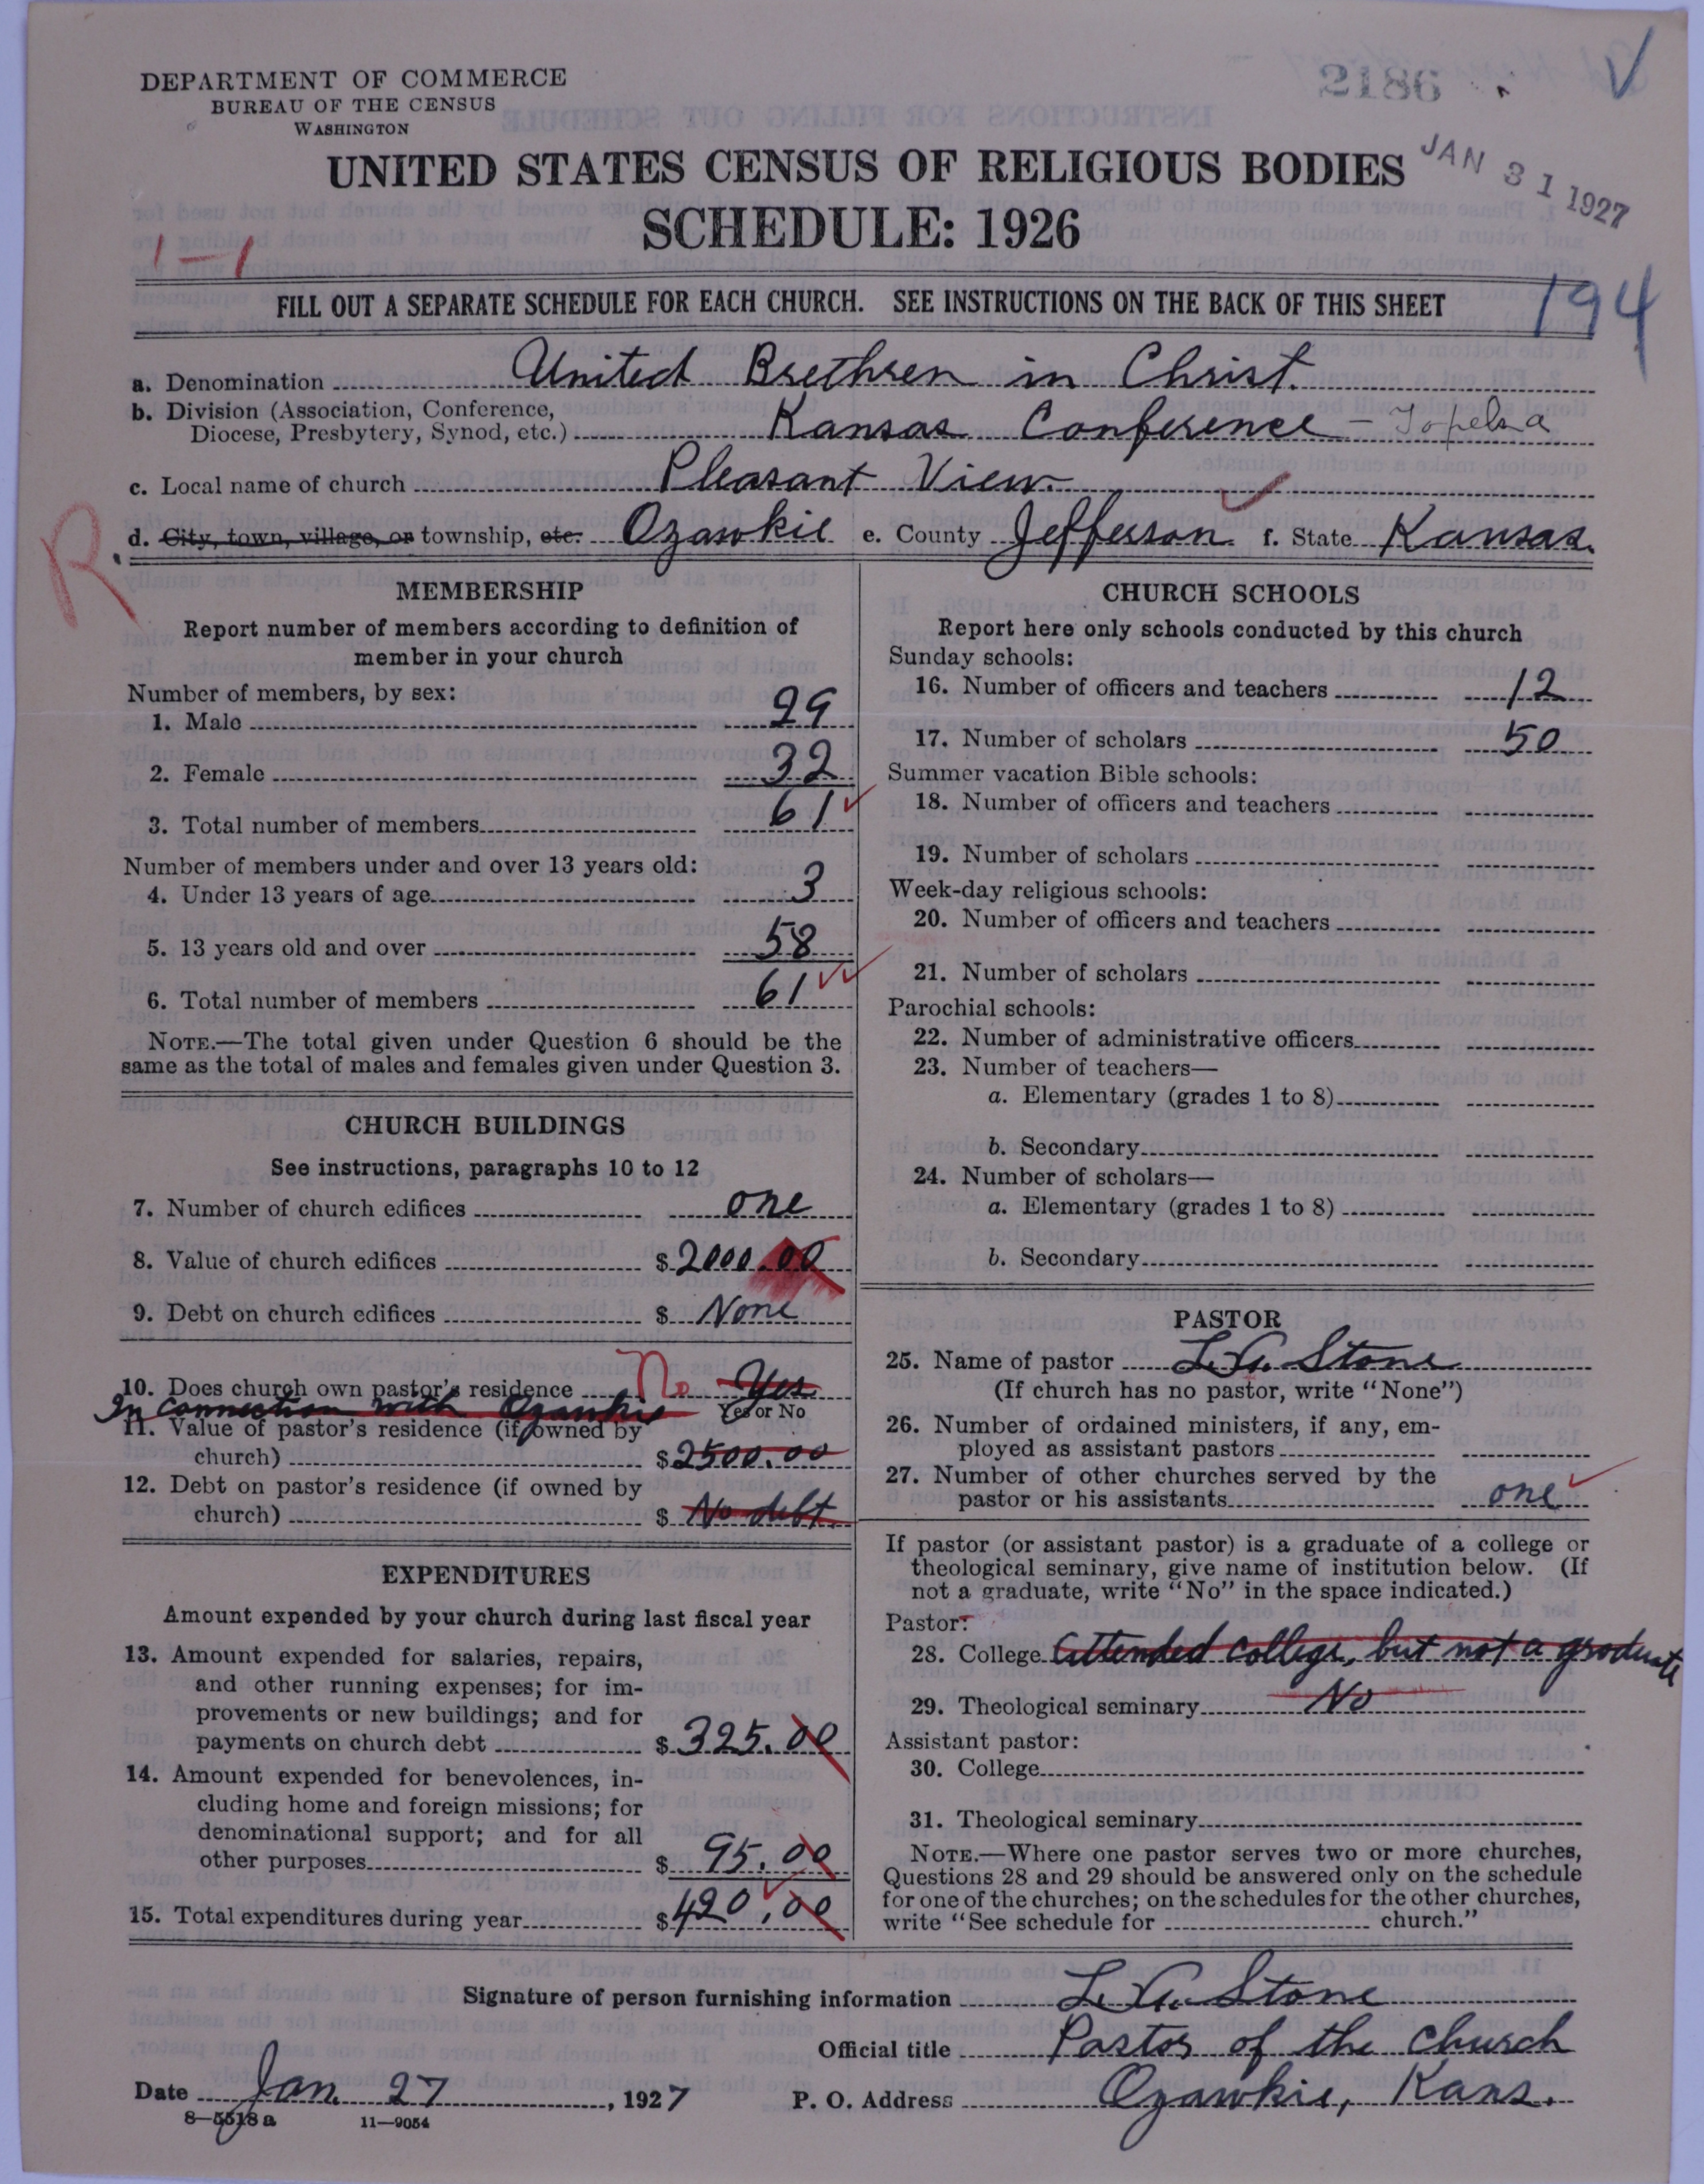 DEPARTMENT OF COMMERCE
BUREAU OF THE CENSUS
WASHINGTON
2186
JAN 31 1927
UNITED STATES CENSUS OF RELIGIOUS BODIES
SCHEDULE: 1926
1-1
FILL OUT A SEPARATE SCHEDULE FOR EACH CHURCH. SEE INSTRUCTIONS ON THE BACK OF THIS SHEET
194
a. Denomination United Brethren in Christ.
b. Division (Association, Conference,
Diocese, Presbytery, Synod, etc.) Kansas Conference - Topeka
c. Local name of church Pleasant View.
d. City, town, village, or township, etc. Ozawkie e. County Jefferson. f. State Kansas.
R
MEMBERSHIP
Report number of members according to definition of
member in your church
Number of members, by sex:
1. Male 29
2. Female 32
3. Total number of members 61
Number of members under and over 13 years old:
4. Under 13 years of age 3
5. 13 years old and over 58
6. Total number of members 61
NOTE.—The total given under Question 6 should be the
same as the total of males and females given under Question 3.
CHURCH BUILDINGS
See instructions, paragraphs 10 to 12
7. Number of church edifices one
8. Value of church edifices $ 2000.00
9. Debt on church edifices $ None
10. Does church own pastor's residence No Yes
Yes or No
In connection with Ozawkie
11. Value of pastor's residence (if owned by
church) $ 2500.00
12. Debt on pastor's residence (if owned by
church) $ No debt.
EXPENDITURES
Amount expended by your church during last fiscal year
13. Amount expended for salaries, repairs,
and other running expenses; for im-
provements or new buildings; and for
payments on church debt $ 325.00
14. Amount expended for benevolences, in-
cluding home and foreign missions; for
denominational support; and for all
other purposes $ 95.00
15. Total expenditures during year $ 420.00
CHURCH SCHOOLS
Report here only schools conducted by this church
Sunday schools:
16. Number of officers and teachers 12
17. Number of scholars 50
Summer vacation Bible schools:
18. Number of officers and teachers
19. Number of scholars
Week-day religious schools:
20. Number of officers and teachers
21. Number of scholars
Parochial schools:
22. Number of administrative officers
23. Number of teachers—
a. Elementary (grades 1 to 8)
b. Secondary
24. Number of scholars—
a. Elementary (grades 1 to 8)
b. Secondary
PASTOR
25. Name of pastor Stone
(If church has no pastor, write "None")
26. Number of ordained ministers, if any, em-
ployed as assistant pastors
27. Number of other churches served by the
pastor or his assistants one
If pastor (or assistant pastor) is a graduate of a college or
theological seminary, give name of institution below. (If
not a graduate, write "No" in the space indicated.)
Pastor:
28. College Attended college, but not a graduate
29. Theological seminary No
Assistant pastor:
30. College
31. Theological seminary
NOTE.—Where one pastor serves two or more churches,
Questions 28 and 29 should be answered only on the schedule
for one of the churches; on the schedules for the other churches,
write "See schedule for church."
Signature of person furnishing information Stone
Official title Pastor of the church
Date Jan. 27, 1927 P. O. Address Ozawkie, Kans.
8—5518 a 11—9054